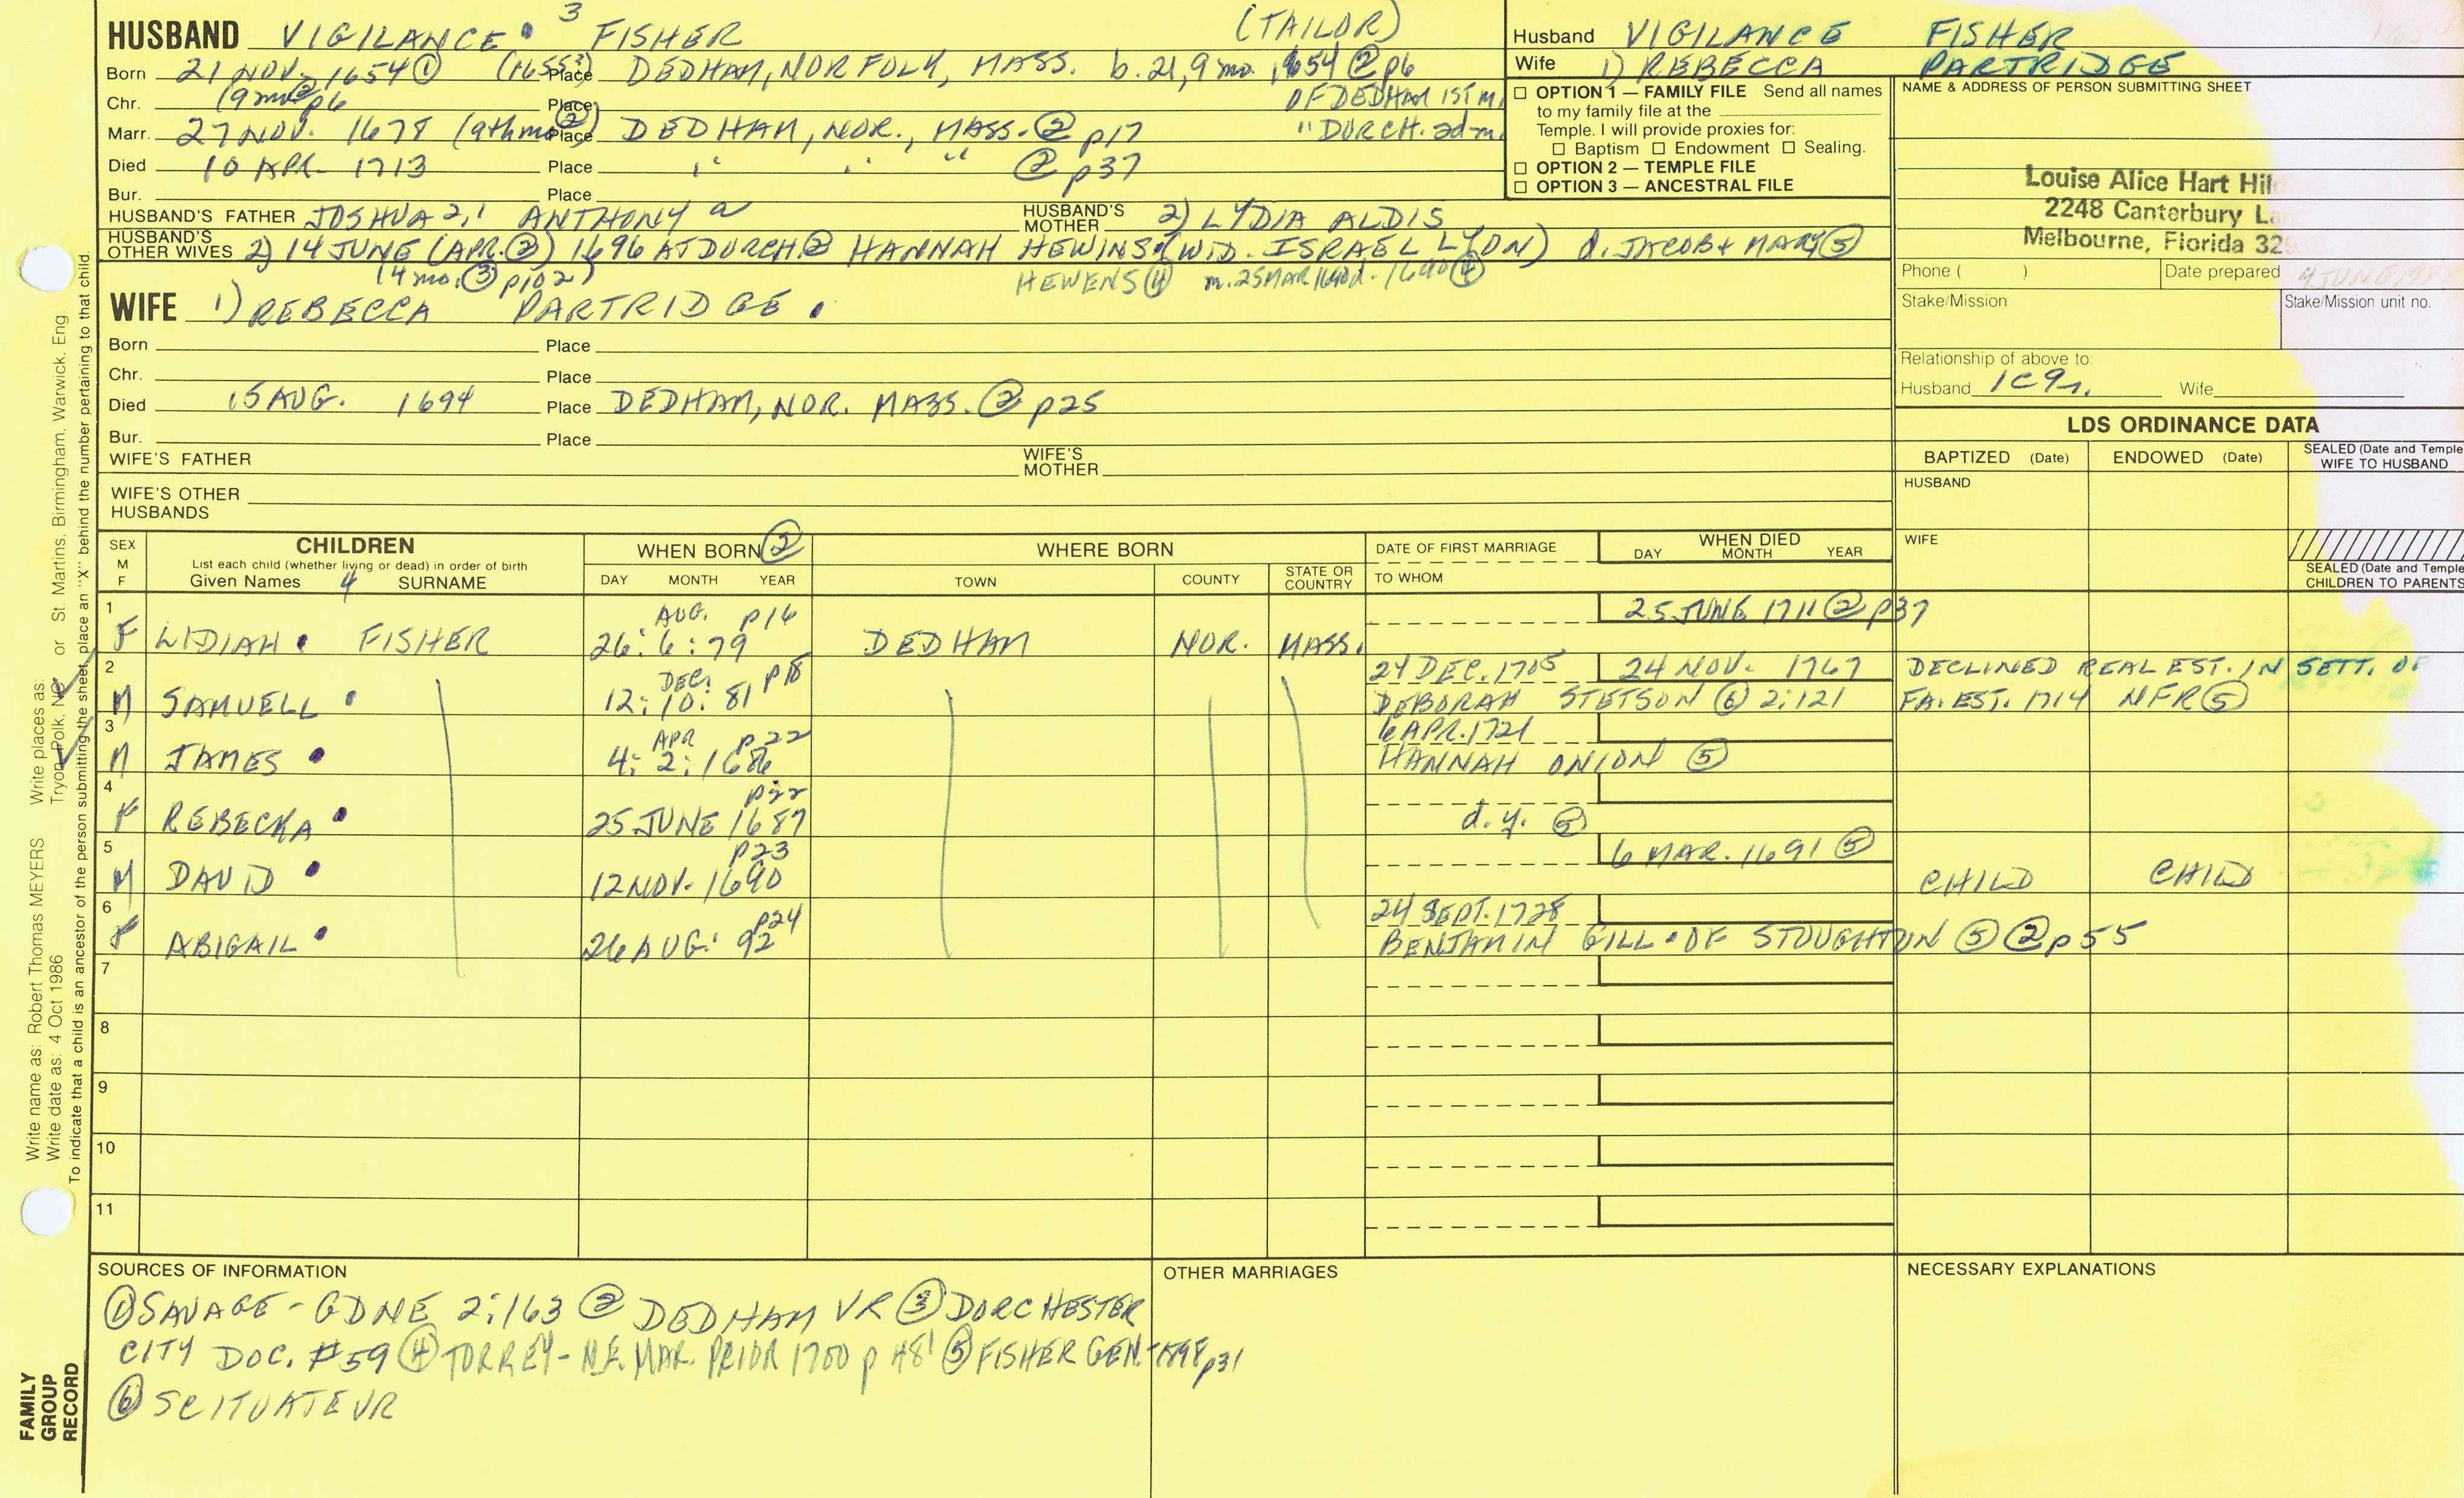 HUSBAND VIGILANCE 3 FISHER (TAILOR)
Born 21 NOV. 1654 ① (1655?) Place DEDHAM, NORFOLK, MASS. b. 21, 9 mo. 1654 ② p6
Chr. (9 mo ② p6 Place OF DEDHAM 1ST M.
Marr. 27 NOV. 1678 (9th mo ②) Place DEDHAM, NOR., MASS. ② p17 " DORCH. adm.
Died 10 APR. 1713 Place " " " ② p37
Bur. Place
HUSBAND'S FATHER JOSHUA 2,1 ANTHONY a HUSBAND'S MOTHER 2) LYDIA ALDIS
HUSBAND'S OTHER WIVES 2) 14 JUNE (APR. ②) 1696 AT DORCH. ② HANNAH HEWINS (WID. ISRAEL LYON) d. JACOB + MARY ⑤
(4 mo. ③ p102) HEWENS ④ m. 25 MAR 1690 ④
WIFE 1) REBECCA PARTRIDGE
Born Place
Chr. Place
Died 15 AUG. 1694 Place DEDHAM, NOR. MASS. ② p25
Bur. Place
WIFE'S FATHER WIFE'S MOTHER
WIFE'S OTHER HUSBANDS
Husband VIGILANCE FISHER
Wife 1) REBECCA PARTRIDGE
☐ OPTION 1 — FAMILY FILE Send all names
to my family file at the
Temple. I will provide proxies for:
☐ Baptism ☐ Endowment ☐ Sealing.
☐ OPTION 2 — TEMPLE FILE
☐ OPTION 3 — ANCESTRAL FILE
NAME & ADDRESS OF PERSON SUBMITTING SHEET
Louise Alice Hart
2248 Canterbury
Melbourne, Florida
Phone ( ) Date prepared 4 JUNE
Stake/Mission Stake/Mission unit no.
Relationship of above to:
Husband 1C9r. Wife
LDS ORDINANCE DATA
BAPTIZED (Date) ENDOWED (Date) SEALED (Date and Temple
WIFE TO HUSBAND
HUSBAND
WIFE
SEALED (Date and Temple
CHILDREN TO PARENTS
SEX M F CHILDREN WHEN BORN ② WHERE BORN DATE OF FIRST MARRIAGE WHEN DIED
List each child (whether living or dead) in order of birth DAY MONTH YEAR
Given Names 4 SURNAME DAY MONTH YEAR TOWN COUNTY STATE OR COUNTRY TO WHOM
1 AUG. p16 25 JUNE 1711 ② p37
F LIDIAH FISHER 26: 6: 79 DEDHAM NOR. MASS.
2 DEC. p18 24 DEC. 1705 24 NOV. 1767 DECLINED REAL EST. IN SETT. OF
M SAMUELL 12: 10: 81 DEBORAH STETSON ⑥ 2:121 FA. EST. 1714 NFR ⑤
3 APR p22 6 APR. 1721
M JAMES 4: 2: 1686 HANNAH ONION ⑤
4 p22
F REBECKA 25 JUNE 1687 d.y. ⑤
5 p23 6 MAR. 1691 ⑤
M DAVID 12 NOV. 1690 CHILD CHILD
6 p24 24 SEPT. 1728
F ABIGAIL 26 AUG. 92 BENJAMIN GILL OF STOUGHTON ⑤ ② p55
7
8
9
10
11
SOURCES OF INFORMATION OTHER MARRIAGES NECESSARY EXPLANATIONS
① SAVAGE - GDNE 2:163 ② DEDHAM VR ③ DORCHESTER
CITY DOC. #59 ④ TORREY - N.E. MAR. PRIOR 1700 p ⑤ FISHER GEN - 1898 p31
⑥ SCITUATE VR
Write name as: Robert Thomas MEYERS Write places as: Tryon, Polk, NC or St. Martins, Birmingham, Warwick, Eng.
Write date as: 4 Oct 1986
To indicate that a child is an ancestor of the person submitting the sheet, place an "X" behind the number pertaining to that child.
FAMILY
GROUP
RECORD